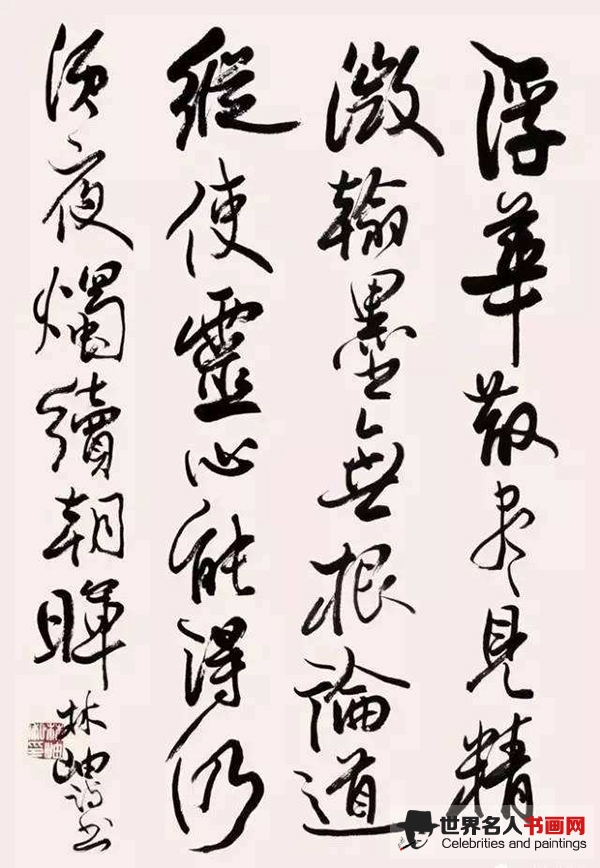 浮華散尽見精
微翰墨無根論道
縱使靈心能得仍
須夜燭續朝暉
林岫詩書
世界名人书画网
Celebrities and paintings